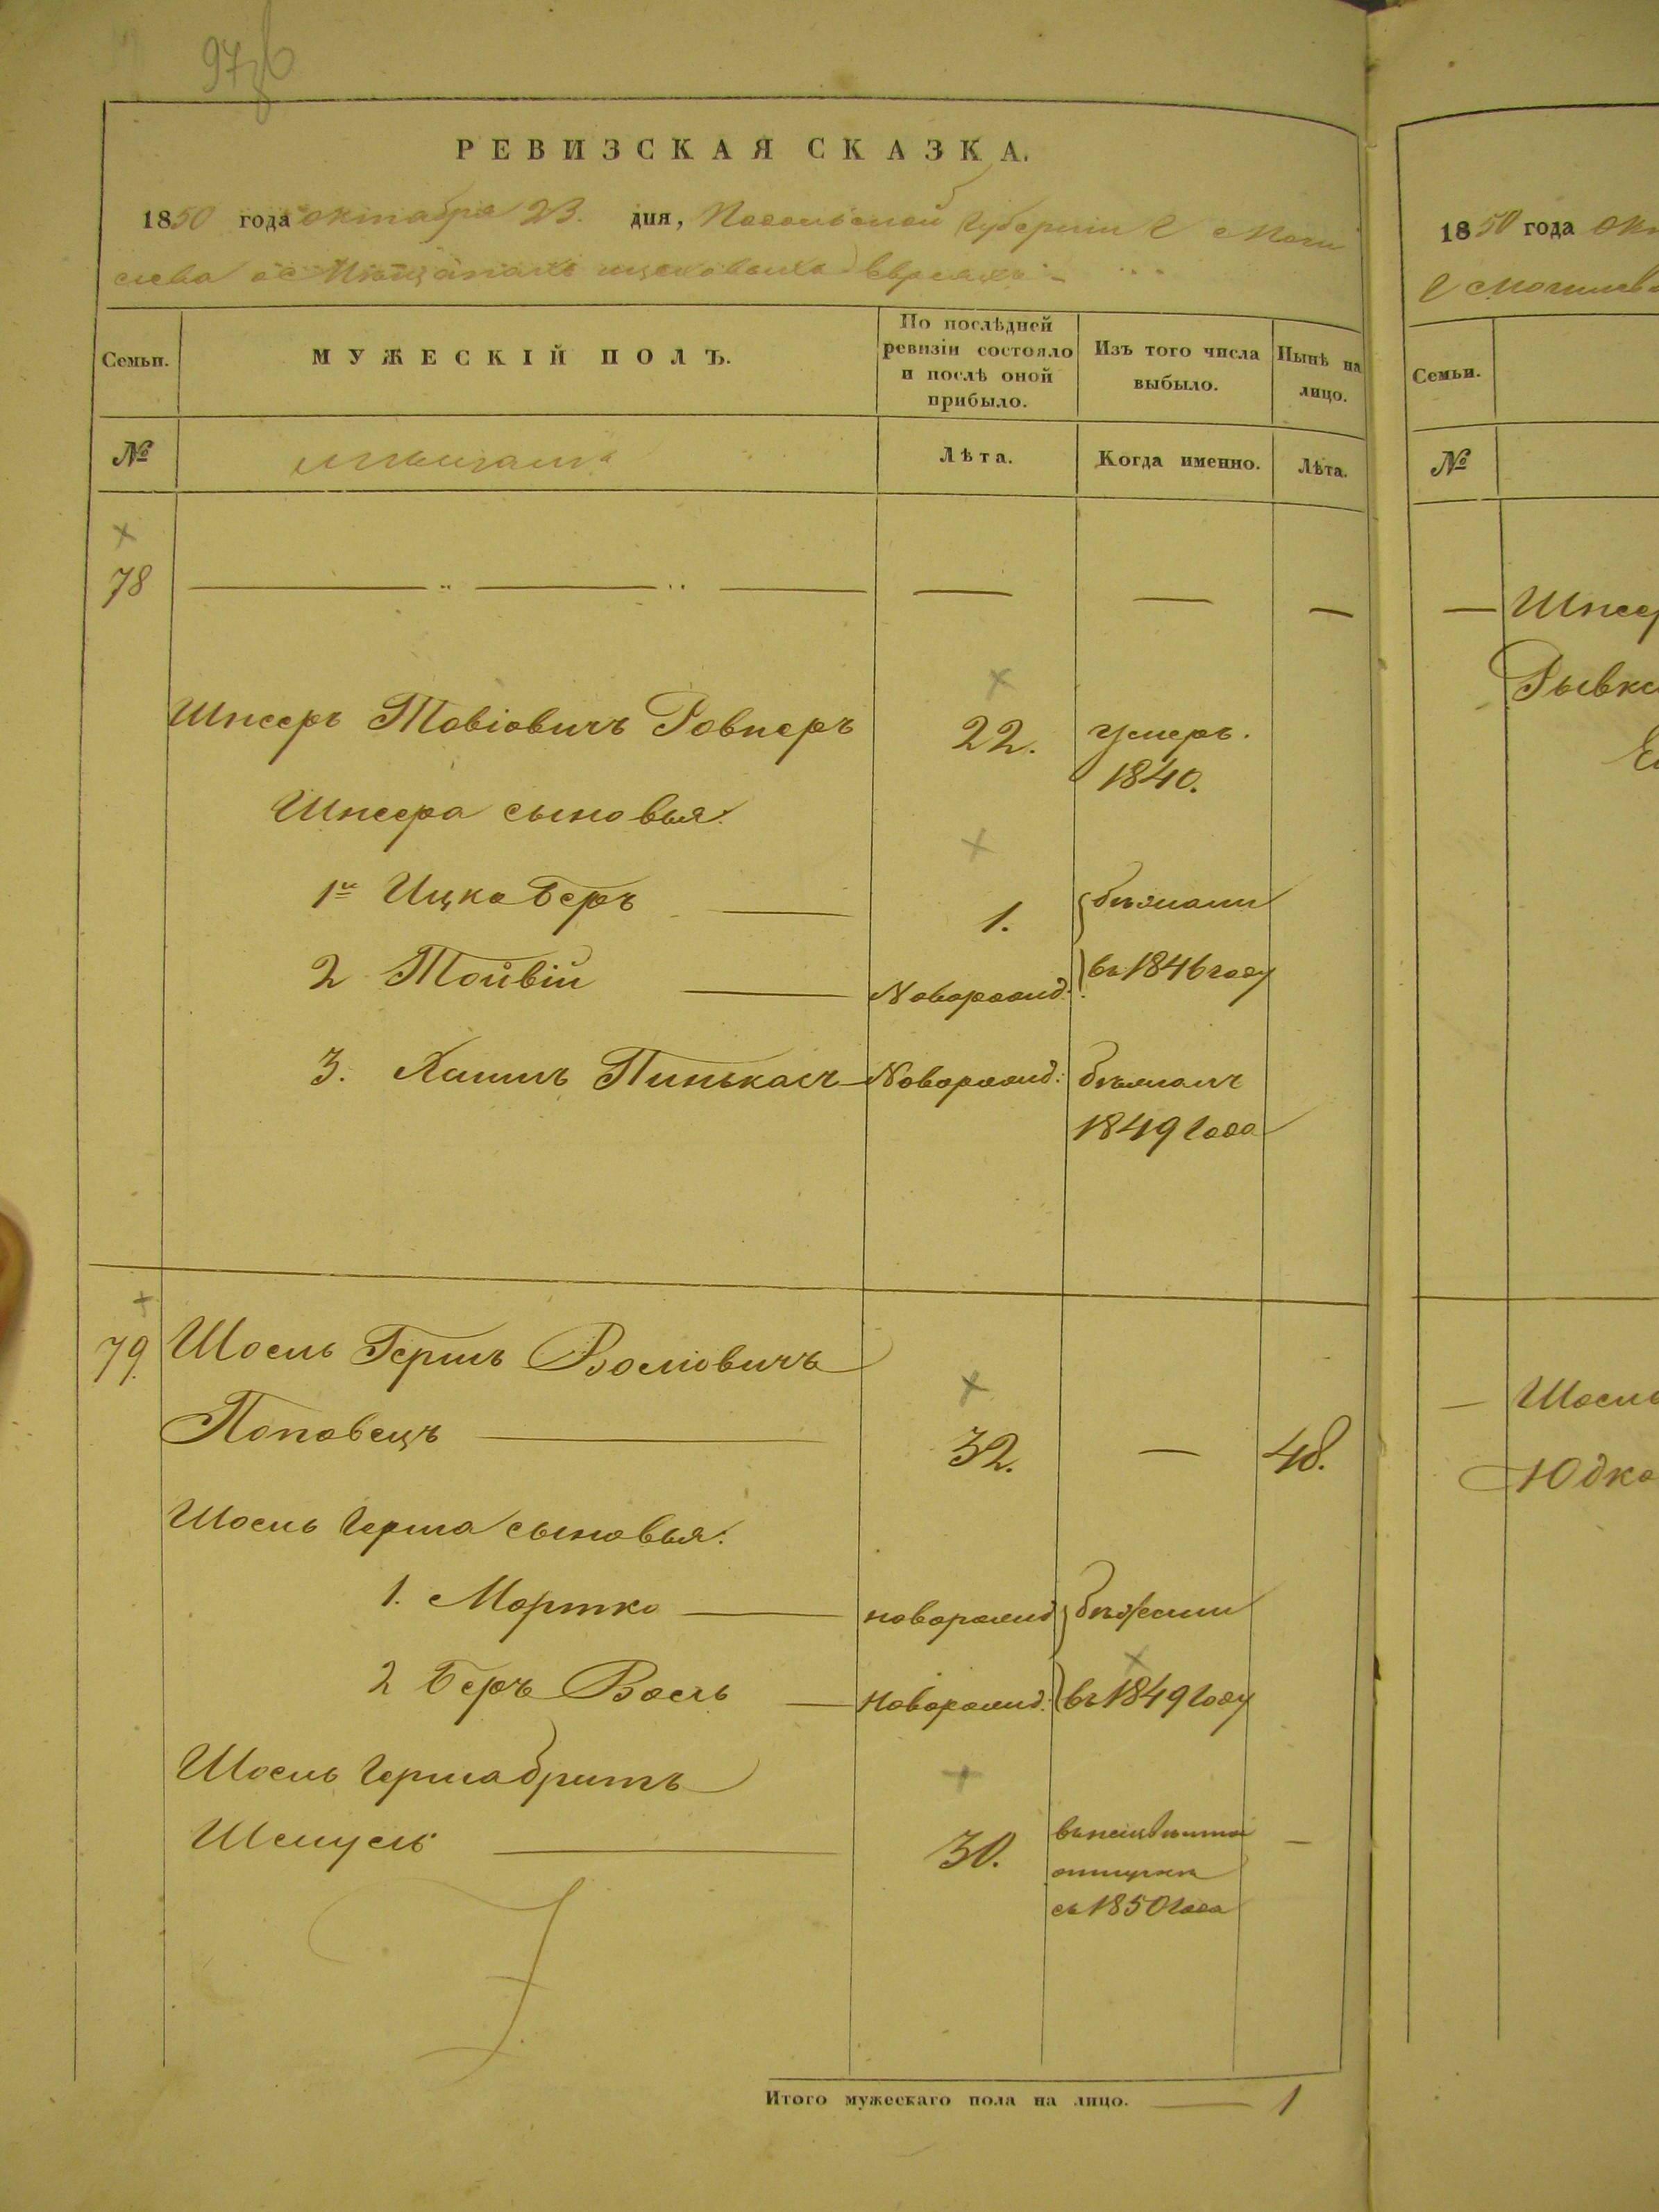 РЕВИЗСКАЯ СКАЗКА.
1850 года октабря 23. дня, Подольской Губернии Г Моги
лева о Мѣщанахъ цеховыхъ Евреяхъ
Семьи.
МУЖЕСКІЙ ПОЛЪ.
По послѣдней
ревизіи состояло
и послѣ оной
прибыло.
Изъ того числа
выбыло.
Нынѣ на
лицо.
№
Лѣта.
Когда именно.
Лѣта.
78
Шпсеръ Товіовичъ Ровнеръ 22. умеръ.
1840.
Шпсера сыновья:
1й Ицко Беръ 1. бѣжали
2 Тойвій Новорожд: въ 1846 году
3. Хаимъ Пинькасъ Новорожд: бѣжалъ
1849 года
79. Шоель Гершъ Волiовичъ
Поповецъ 32. — 48.
Шоель Герша сыновья:
1. Мортко новорожд бѣжали
2 Беръ Воель Новорожд: въ 1849 году
Шоель Герша братъ
Шмуель 30.
съ 1850 года
Итого мужескаго пола на лицо. 1
1850 года
Г Могилев
Семьи.
№
Шпсер
Рывка
Шоель
Юдко